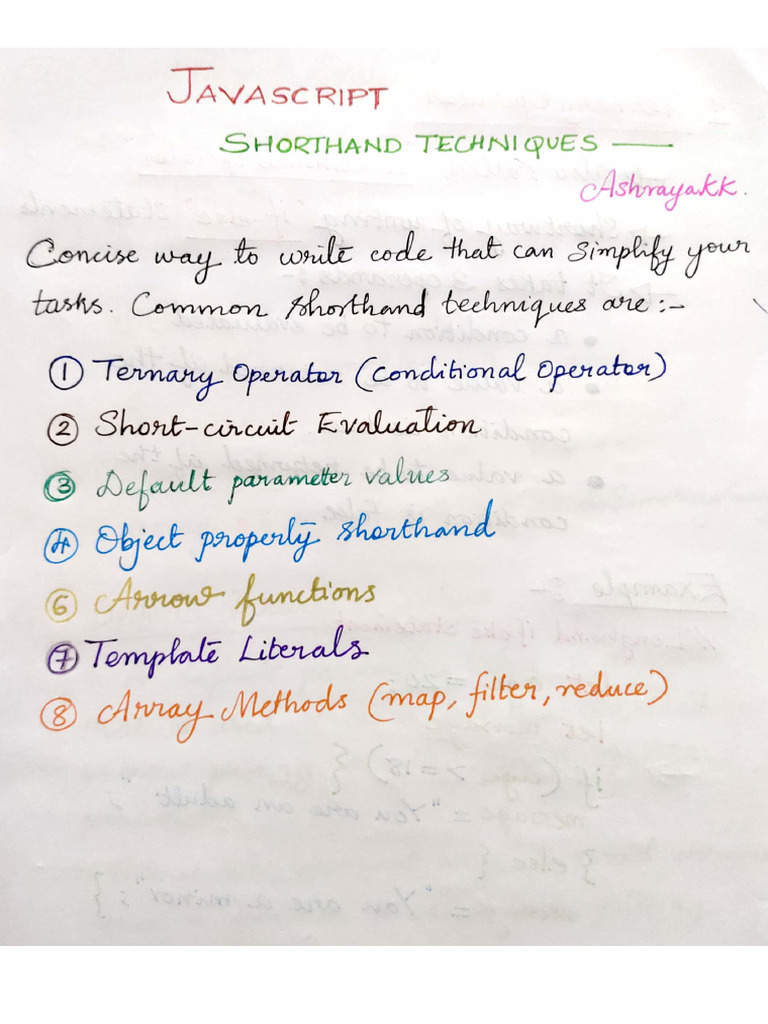 JAVASCRIPT
SHORTHAND TECHNIQUES —
AshrayaKK.
Concise way to write code that can simplify your
tasks. Common shorthand techniques are :-
① Ternary Operator (Conditional Operator)
② Short-circuit Evaluation
③ Default parameter values
④ Object property shorthand
⑥ Arrow functions
⑦ Template Literals
⑧ Array Methods (map, filter, reduce)